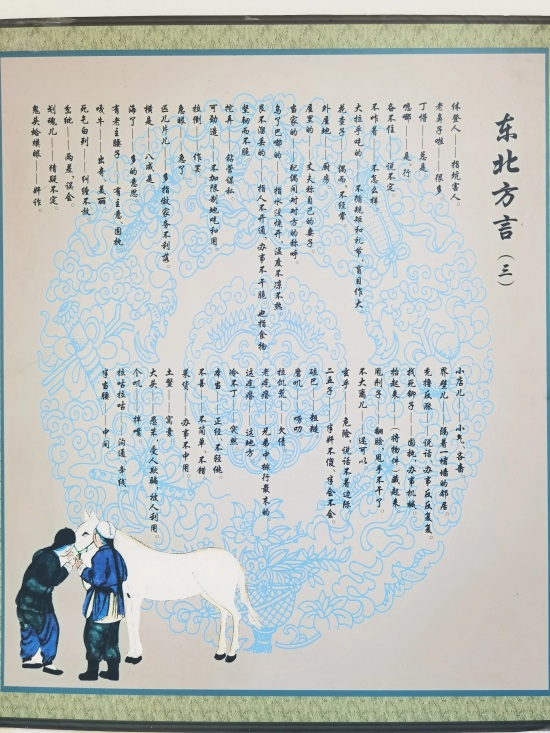 东北方言（三）
体登人——指坑害人。
老鼻子啦——很多
丁惜——总是。
嗯哪——是、行
备不住——说不定。
不咋着——不怎么样
大拉乎吃的——不懂规矩和礼节，盲目作大。
花茬子——偶而、不经常
外屋地——厨房
屋里的——丈夫称自己的妻子。
当家的——配偶间对对方的称呼。
乌了巴嘟的——指水没烧开，温度不凉不热
艮不溜丢的——指人不开通，办事不干脆。也指食物
坚韧而不脆
挖弄——钻营谋私
可劲造——不加限制地吃和用
拉倒——作罢
急眼——急了
匹儿片儿——多指做家务不利落。
横是——八成是
海了——多的意思
有老主腰子——有主意、固执
嘎牛——出奇、美丽。
死乞白列——纠缠不放
岔纰——两差，误会
划魂儿——猜疑不定。
鬼头蛤蟆眼——胖作。
小店儿——小气、吝啬。
界壁儿——隔着一堵墙的邻居。
秃撸反涨——说话、办事反反复复。
找死铆子——固执、办事机械。
抬起来——（将物件）藏起来
甩剂子——翻脸、甩手不干了。
不大离儿——还可以
玄乎——危险，说话不着边际
二五子——半精不傻、半会不会
砬巴——粗糙
磨叽——唠叨
拉饥荒——欠债
老疙瘩——兄弟中排行最末的。
这疙瘩——这地方
冷不丁——突然
本当——正经、不轻佻。
不善——不简单、不错。
菜货——办事不中用
土鳖——窝囊
大头——愚笨，受人欺骗，被人利用。
个叽——拌嘴
拉咕拉咕——沟通、牵线
半当腰——中间